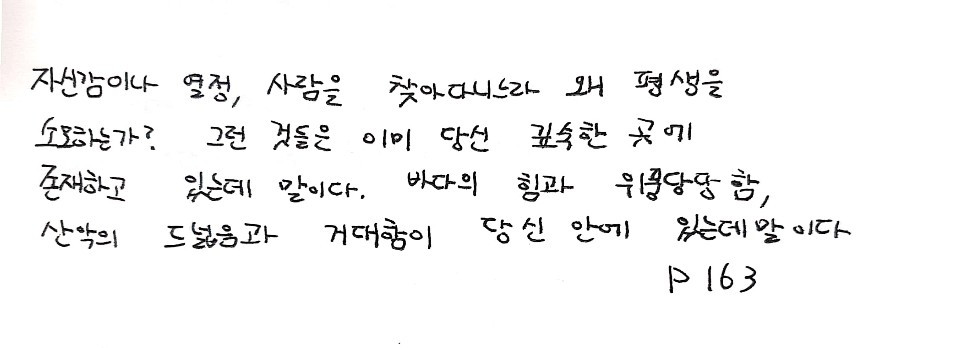 자신감이나 열정, 사람을 찾아다니느라 왜 평생을
소모하는가? 그런 것들은 이미 당신 깊숙한 곳에
존재하고 있는데 말이다. 바다의 힘과 위풍당당함,
산악의 드넓음과 거대함이 당신 안에 있는데 말이다
P 163